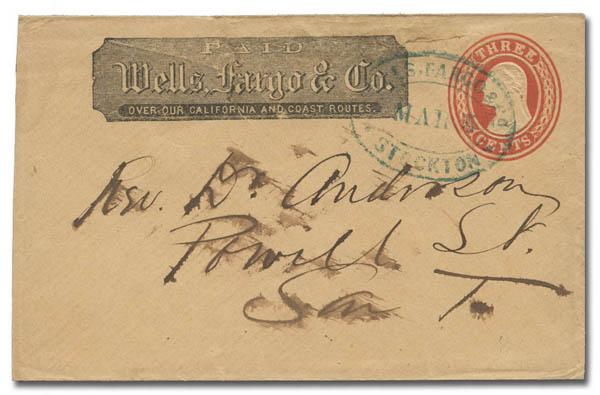 PAID
Wells, Fargo & Co.
OVER OUR CALIFORNIA AND COAST ROUTES.
S. FARGO &
MAR
STOCKTON
THREE
CENTS
Rev. Dr. Anderson
Powell St.
San F.